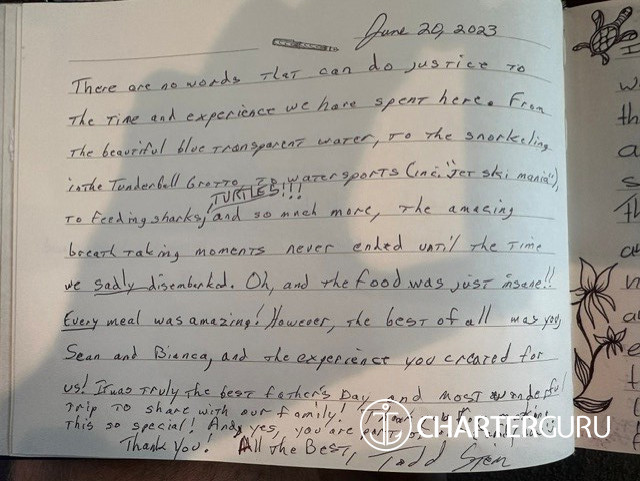 June 20, 2023
There are no words that can do justice to
the time and experience we have spent here. From
the beautiful blue transparent water, to the snorkeling
in the Tunderball Grotto, to watersports (inc. "jet ski mania"),
TURTLES!!!
to feeding sharks, and so much more, the amazing
breath taking moments never ended until the time
we sadly disembarked. Oh, and the food was just insane!!
Every meal was amazing! However, the best of all was you,
Sean and Bianca, and the experience you created for
us! It was truly the best Father's Day, and most wonderful
trip to share with our family! Thank you both
this so special! And, yes, you are part of our
Thank you! All the Best, Todd
CHARTERGURU